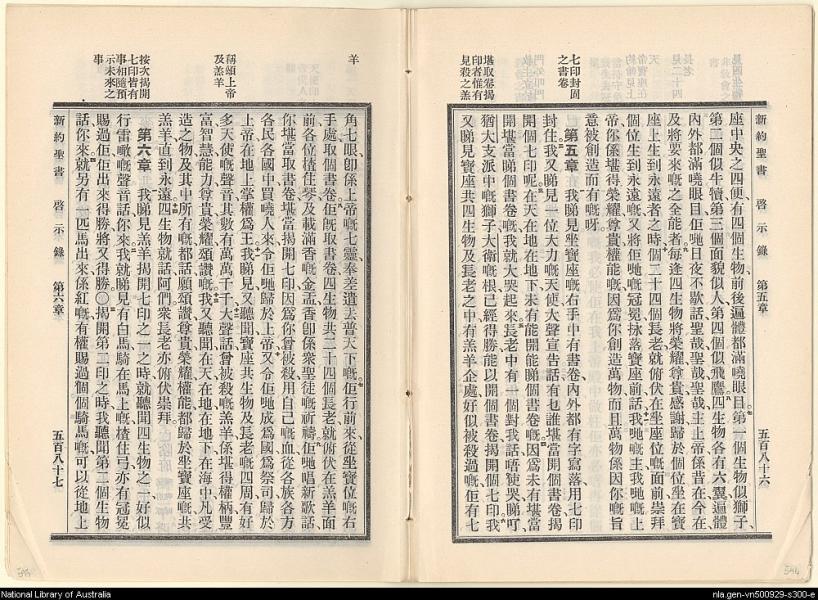 新約聖書 啓示錄 第五章 五百八十六
七印封固之書卷
堪取卷揭印者惟有見殺之羔
座中央之四便有四個生物前後遍體都滿嘵眼目第一個生物似獅子
第二個似牛犢第三個面貌似人第四個似飛鷹四生物各有六翼遍體
內外都滿嘵眼目佢哋日夜不歇話聖哉聖哉聖哉主上帝係昔在今在
及將要來嘅之全能者每逢四生物將榮耀尊貴感謝歸於個位坐在寶
座上生到永遠者之時個二十四個長老就俯伏在坐座位嘅面前崇拜
個位生到永遠嘅又將佢哋嘅冠冕𢱕落寶座前話我哋嘅主我哋嘅上
帝你係堪得榮耀尊貴權能嘅因爲你創造萬物而且萬物係因你嘅旨
意被創造而有嘅呀
第五章 我睇見坐寶座嘅右手中有書卷內外都有字寫落用七印
封住我又睇見一位大力嘅天使大聲宣告話有乜誰堪當開個書卷揭
開個七印呢在天在地在地下未有能開能睇個書卷嘅因爲未有堪當
開堪當睇個書卷嘅我就大哭起來長老中有一個對我話唔使哭睇吖
猶大支派中嘅獅子大衛嘅根已經得勝能以開個書卷揭開個七印我
又睇見寶座共四生物及長老之中有羔羊企處好似被殺過嘅佢有七
羊
稱頌上帝及羔羊
按次揭開七印皆有事相隨預示未來之事
角七眼卽係上帝嘅七靈奉差遣去普天下嘅佢行前來從坐寶位嘅右
手處取個書卷佢旣取書卷四生物共二十四個長老就俯伏在羔羊面
前各位楂住琴及載滿香嘅金盂香卽係衆聖徒嘅祈禱佢哋唱新歌話
你堪當取書卷堪當揭開七印因爲你曾被殺用自己嘅血從各族各方
各民各國中買嘵人來令佢哋歸於上帝又令佢哋成爲國爲祭司歸於
上帝在地上掌權爲王我睇見又聽聞寶座共生物及長老嘅四周有好
多天使嘅聲音其數有萬萬千千大聲話曾被殺嘅羔羊係堪得權柄豐
富智慧能力尊貴榮耀頌讚嘅我又聽聞在天在地在地下在海中凡受
造之物及其中所有嘅都話願頌讚尊貴榮耀權能都歸於坐寶座嘅共
羔羊直到永遠四生物就話阿們衆長老亦俯伏崇拜
第六章 我睇見羔羊揭開七印之一之時就聽聞四生物之一好似
行雷噉嘅聲音話你來我就睇見有白馬騎在馬上嘅楂住弓亦有冠冕
賜過佢佢出來得勝將又得勝〇揭開第二印之時我聽聞第二個生物
話你來就另有一匹馬出來係紅嘅有權賜過個個騎馬嘅可以從地上
新約聖書 啓示錄 第六章 五百八十七
National Library of Australia
nla.gen-vn500929-s300-e